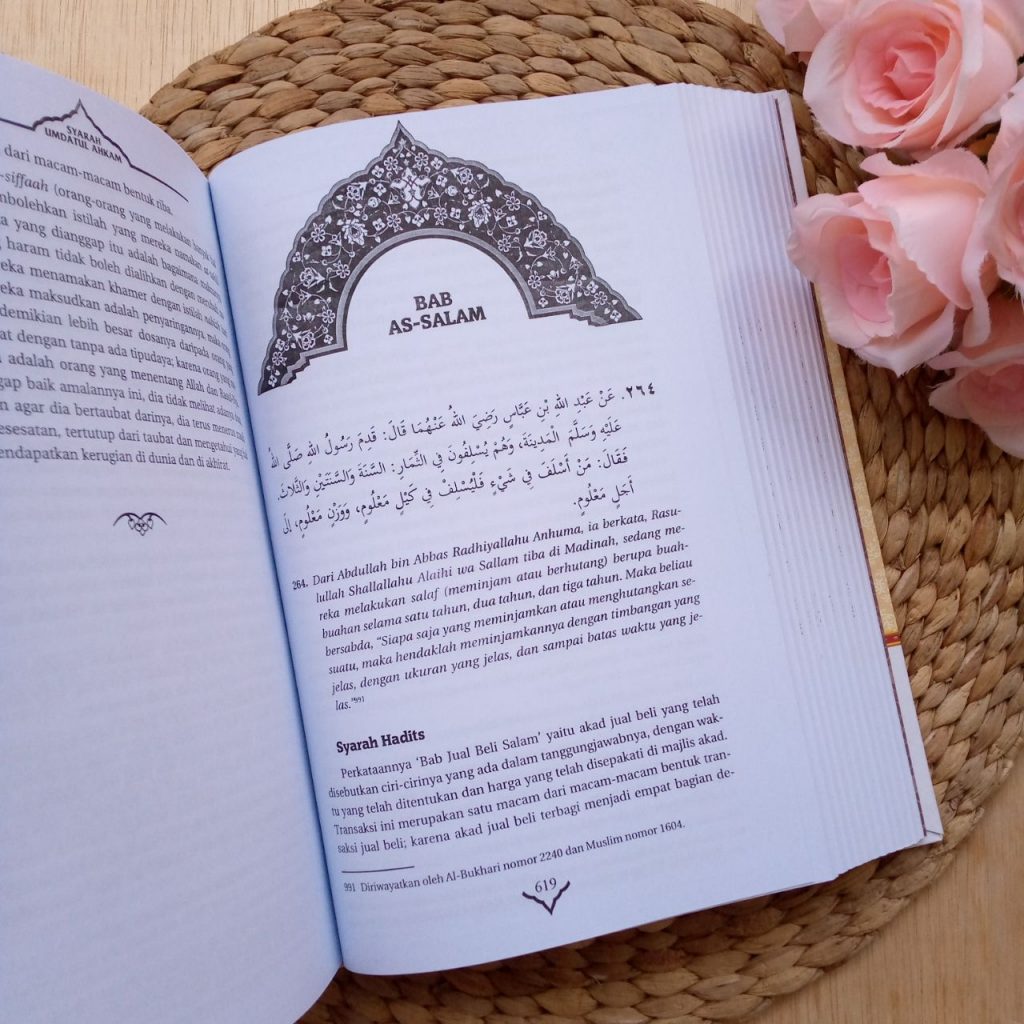 SYARAH
UMDATUL AHKAM
dari macam-macam bentuk riba.
-siffaah (orang-orang yang melakukan
nbolehkan istilah yang mereka namakan
a yang dianggap itu adalah bagaimana
, haram tidak boleh dialihkan dengan
reka menamakan khamer dengan istilah
reka maksudkan adalah penyaringannya, maka
demikian lebih besar dosanya daripada orang
at dengan tanpa ada tipudaya; karena orang
adalah orang yang menentang Allah dan
gap baik amalannya ini, dia tidak melihat
n agar dia bertaubat darinya, dia terus
esesatan, tertutup dari taubat dan
endapatkan kerugian di dunia dan di akhirat.
BAB
AS-SALAM
٢٦٤. عَنْ عَبْدِ اللهِ بْنِ عَبَّاسٍ رَضِيَ اللهُ عَنْهُمَا قَالَ: قَدِمَ رَسُولُ اللهِ صَلَّى اللهُ
عَلَيْهِ وَسَلَّمَ الْمَدِينَةَ، وَهُمْ يُسْلِفُونَ فِي الثِّمَارِ: السَّنَةَ وَالسَّنَتَيْنِ وَالثَّلَاثَ.
فَقَالَ: مَنْ أَسْلَفَ فِي شَيْءٍ فَلْيُسْلِفْ فِي كَيْلٍ مَعْلُومٍ، وَوَزْنٍ مَعْلُومٍ، إِلَى
أَجَلٍ مَعْلُومٍ.
264. Dari Abdullah bin Abbas Radhiyallahu Anhuma, ia berkata, Rasu-
lullah Shallallahu Alaihi wa Sallam tiba di Madinah, sedang me-
reka melakukan salaf (meminjam atau berhutang) berupa buah-
buahan selama satu tahun, dua tahun, dan tiga tahun. Maka beliau
bersabda, “Siapa saja yang meminjamkan atau menghutangkan se-
suatu, maka hendaklah meminjamkannya dengan timbangan yang
jelas, dengan ukuran yang jelas, dan sampai batas waktu yang je-
las.”991
Syarah Hadits
Perkataannya ‘Bab Jual Beli Salam’ yaitu akad jual beli yang telah
disebutkan ciri-cirinya yang ada dalam tanggungjawabnya, dengan wak-
tu yang telah ditentukan dan harga yang telah disepakati di majlis akad.
Transaksi ini merupakan satu macam dari macam-macam bentuk tran-
saksi jual beli; karena akad jual beli terbagi menjadi empat bagian de-
991 Diriwayatkan oleh Al-Bukhari nomor 2240 dan Muslim nomor 1604.
619